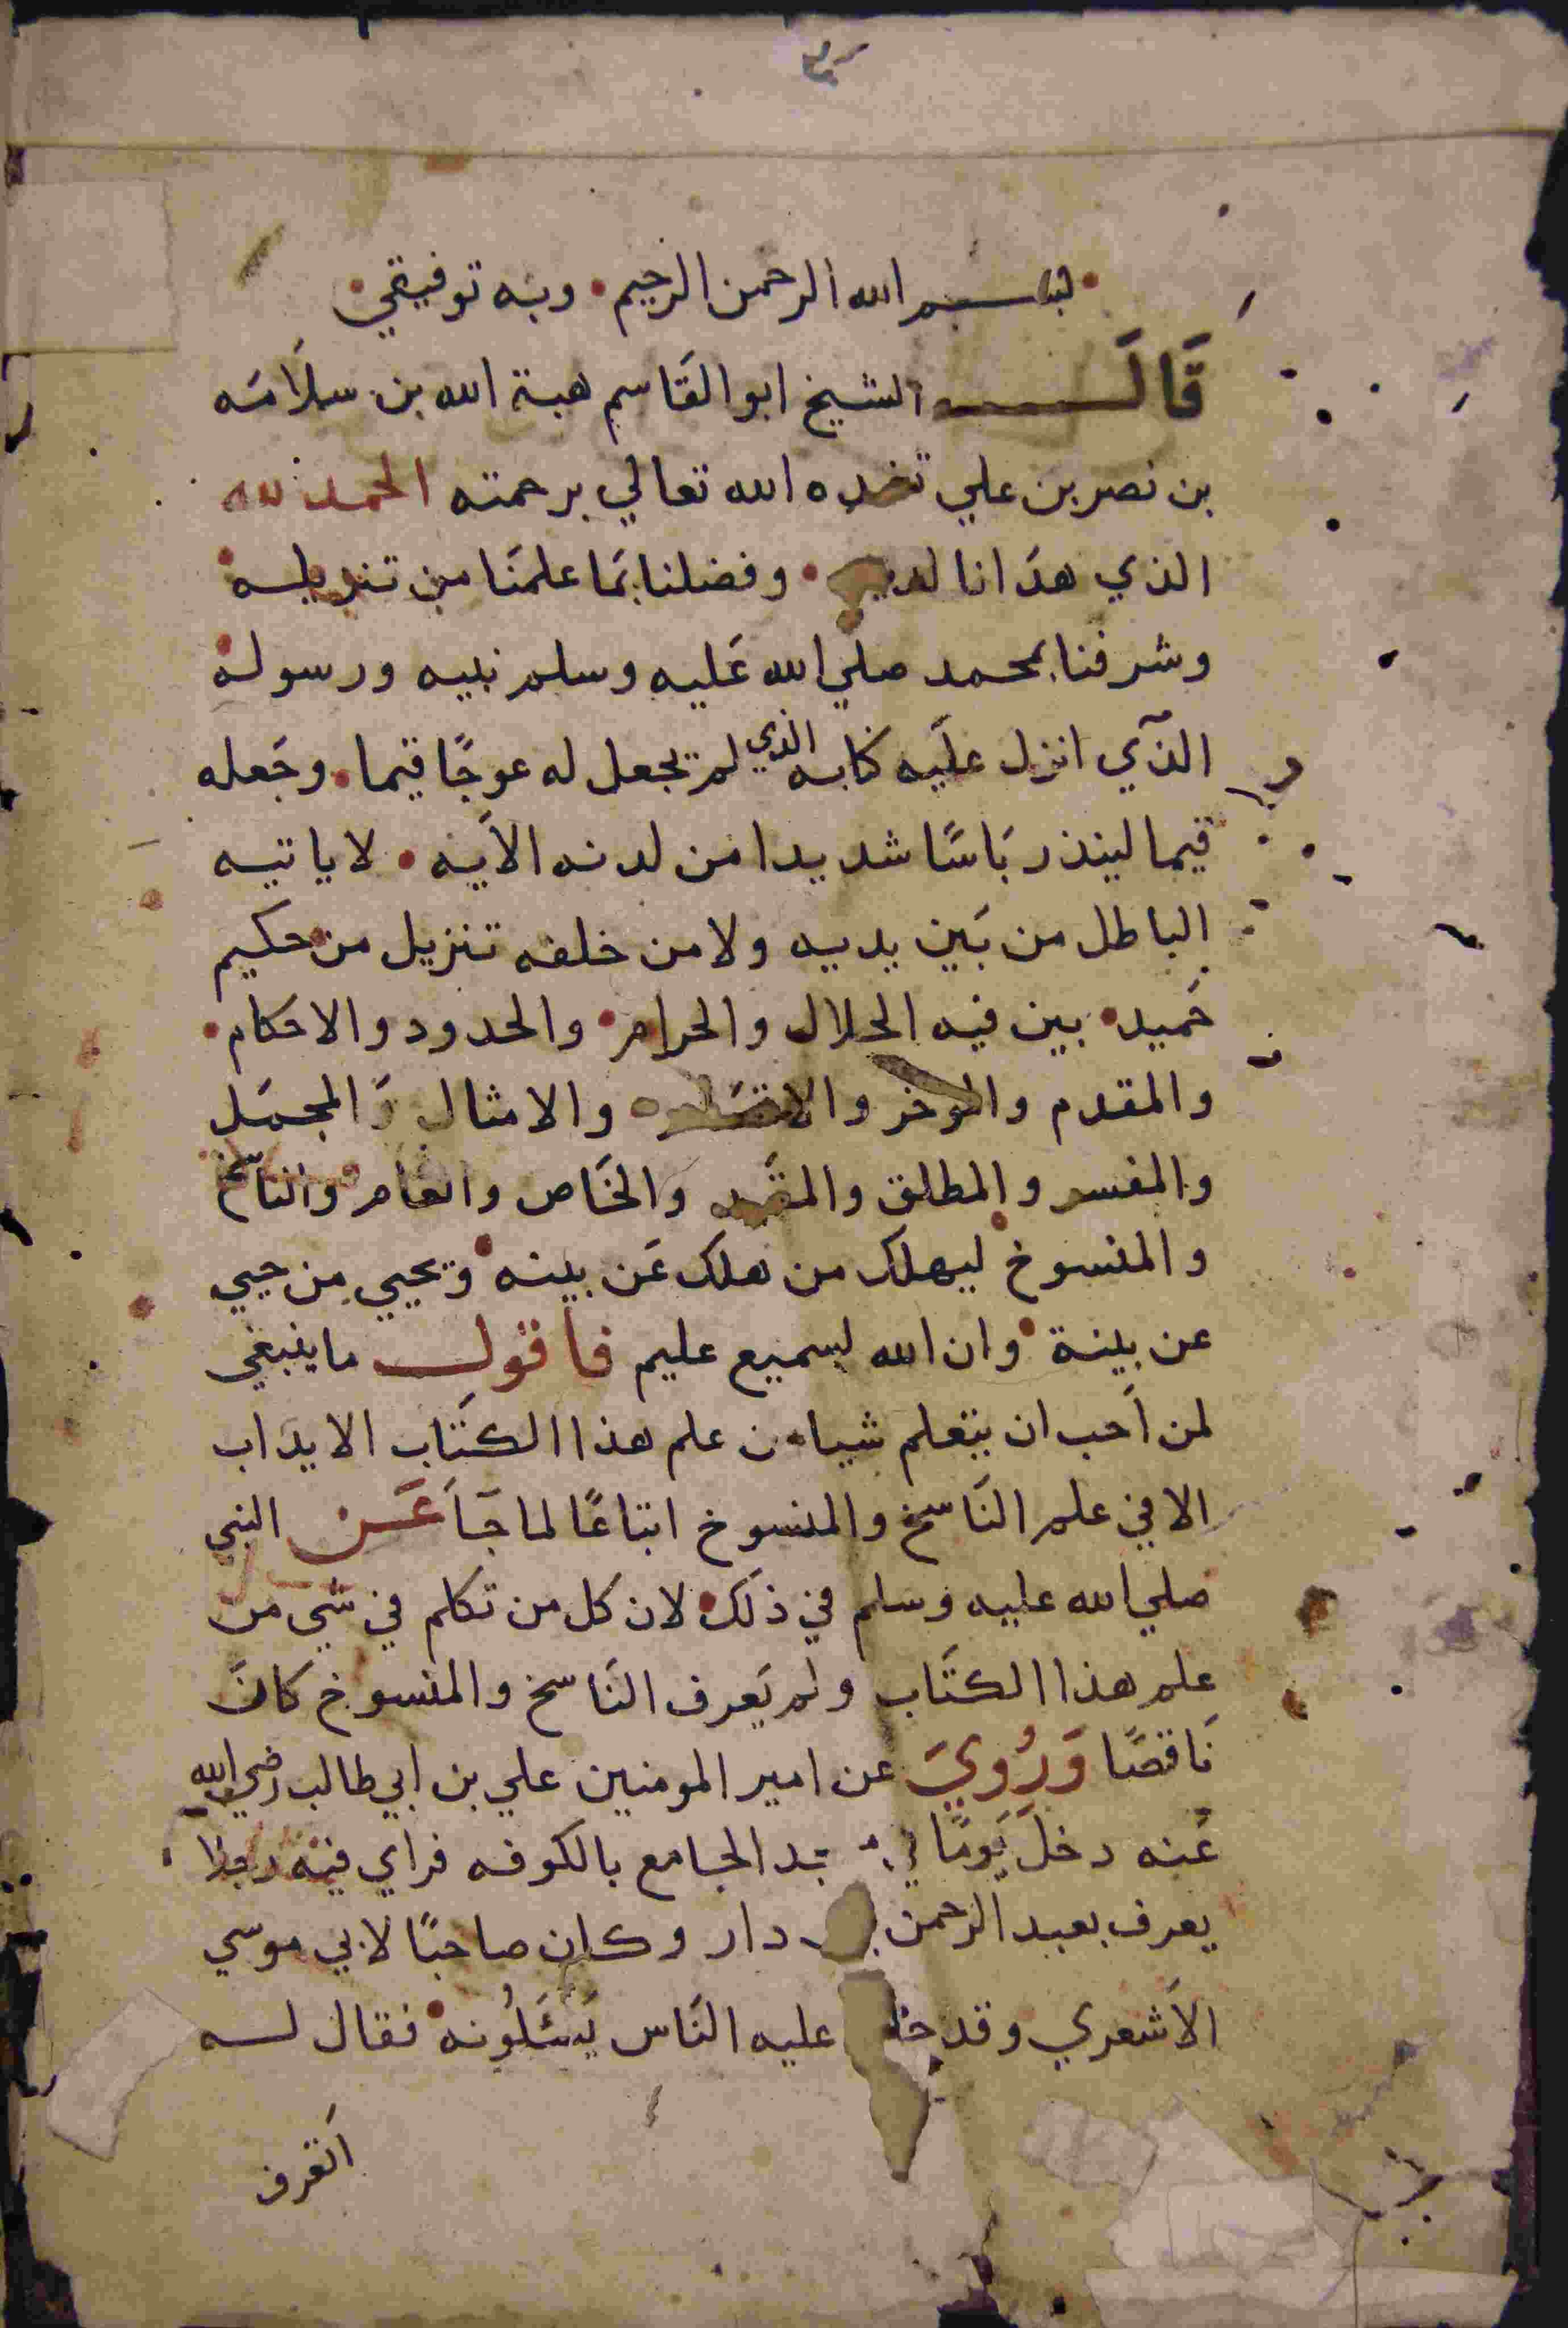 بسم الله الرحمن الرحيم • وبه توفيقي •
قَالَ الشيخ ابو القَاسم هبة الله بن سلَامَه
بن نصر بن علي تغمده الله تعالي برحمته الحمد لله
الذي هدَانا • وفضلنا بمَا علمنَا من تنزيله
وشرفنا بمحمد صلي الله عَليه وسلم نبيه ورسوله
الذَي انزل علَيه كتابه الذي لم يجعل له عوجًا قيما • وجَعله
قيما لينذر بَاسًا شديدا من لدنه الاَيه • لا ياتيه
الباطل من بَين يديه ولا من خلفه تنزيل من حكيم
حَميد • بين فيه الحلال والحرام • والحدود والاحكام •
والمقدم والموخر والامثال وَالمجمَل
والمفسر والمطلق والمقَيد والخَاص والعام والنَاسخ
والمنسوخ • ليهلك من هلك عَن بينه • ويحيي من حيي
عن بينة • وان الله لسميع عليم فاقول ما ينبغي
لمن اَحب ان يتعلم شيا من علم هذا الكتَاب الا يدَاب
الا في علم النَاسخ والمنسوخ ابتاعًا لما جَاَ عَن النبي
صلي الله عليه وسلم في ذلَك • لان كل من تكلم في شَي من
علم هذا الكتَاب ولم يَعرف النَاسخ والمنسوخ كانَ
نَاقصًا وَرُويَ عن امير المومنين علي بن ابي طالب رضي الله
عَنه دخلَ يَومًا الجامع بالكوفه فراي فيه رجلا
يعرف بعبد الرحمن دار وكان صاحبًا لابي موسي
الاَشعري وقد عليه النَاس يَسئَلُونه • فقال له
اتَعرف